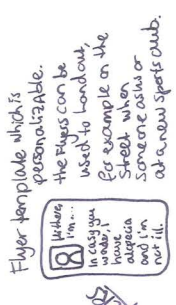 Flyer template which is
personalizable.
the Flyers can be
used to handout,
for example on the
Street when
Someone asks or
at a new sports club.
Hi there,
i'm ...
In case you
wonder, i
have
alopecia
and i'm
not ill.